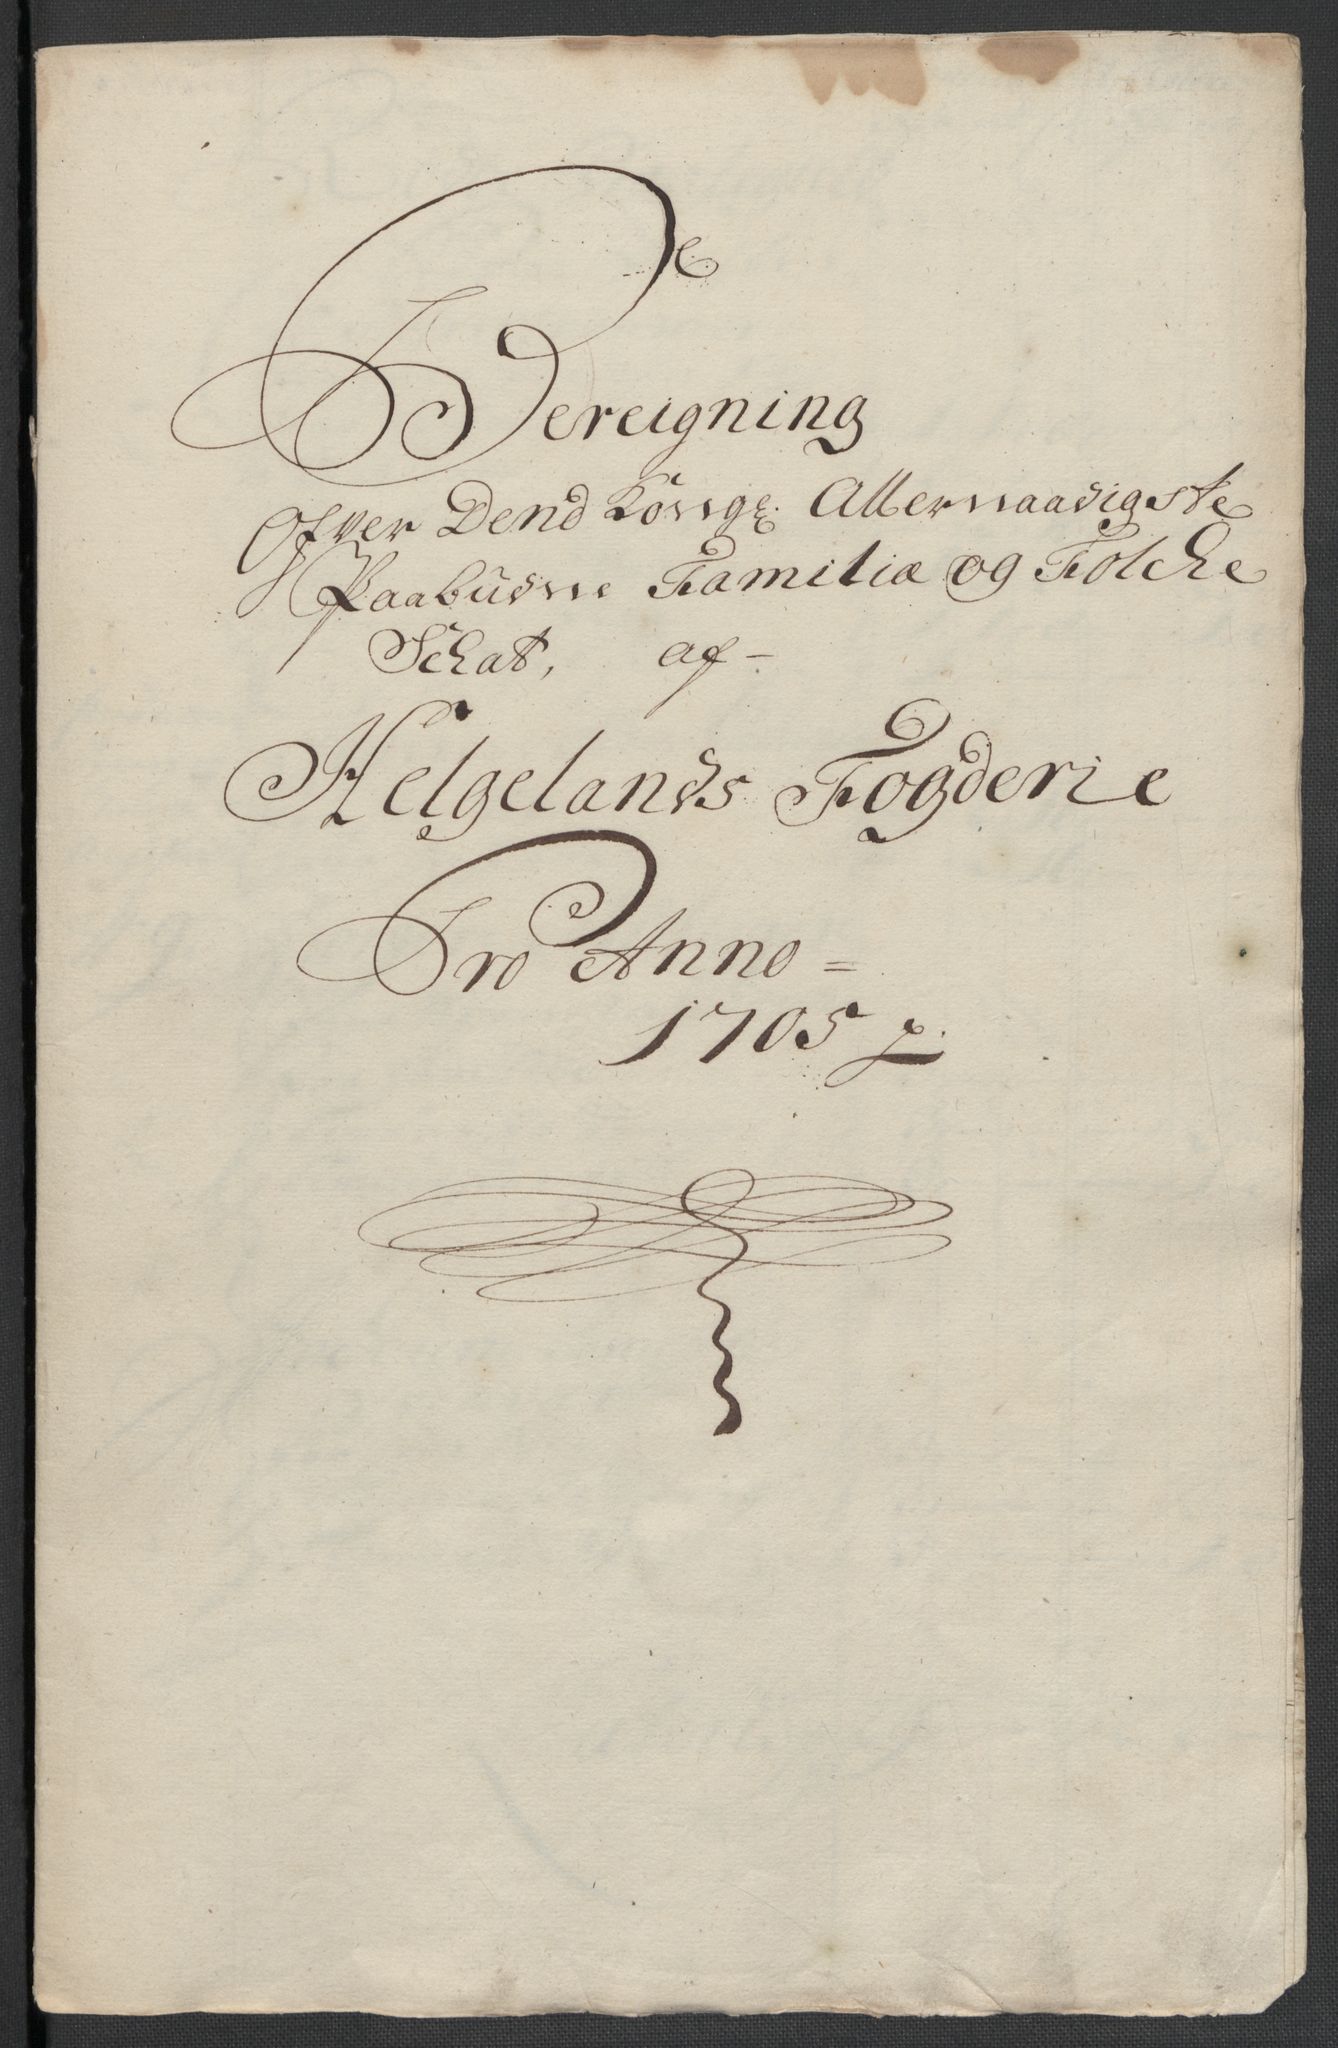 Bereigning
Ofver Dend Könnge: Allernaadigste
Paabudne Familiæ og Folche
Schat, af -
Helgelands Fogderie
Pro Anno =
1705